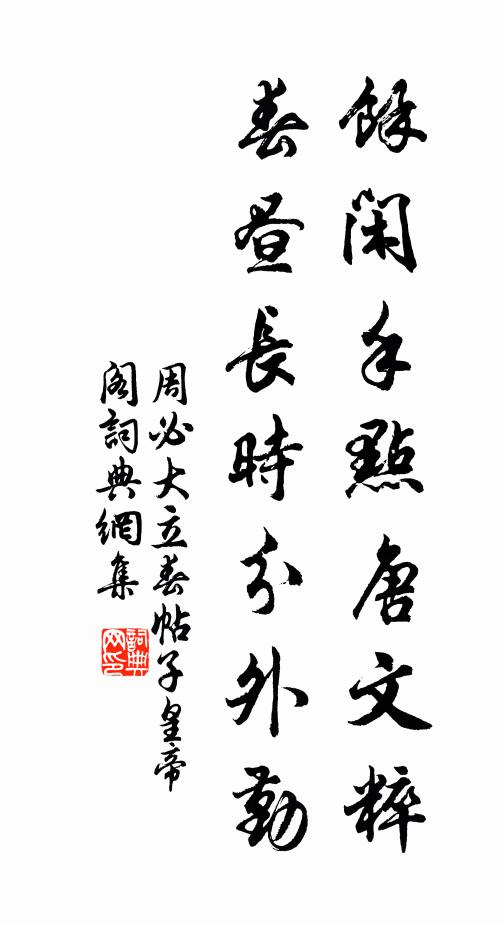 餘閑手點唐文粹
春晝長時分外勤
周必大立春帖子皇帝
閣詞典網集
詞典网印